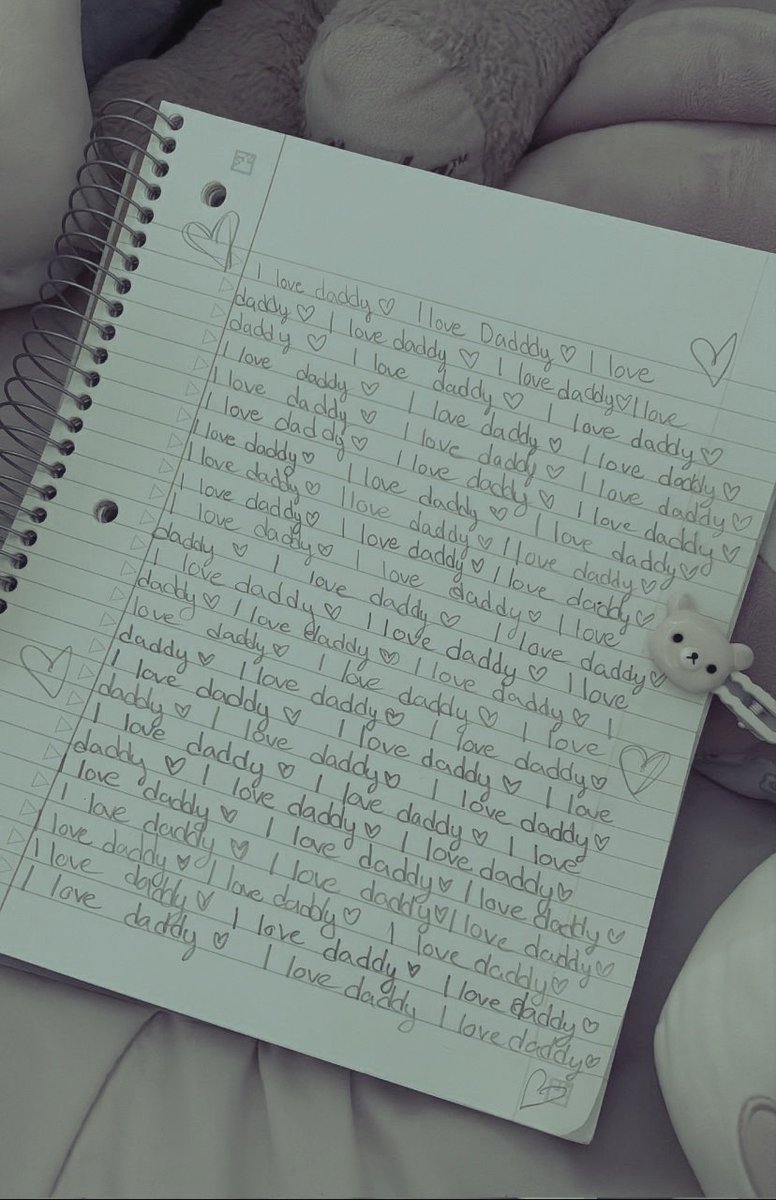 I love daddy ♡ I love Dadddy ♡ I love
daddy ♡ I love daddy ♡ I love daddy ♡ I love
daddy ♡ I love daddy ♡ I love daddy ♡
I love daddy ♡ I love daddy ♡ I love daddy ♡
I love daddy ♡ I love daddy ♡ I love daddy ♡
I love daddy ♡ I love daddy ♡ I love daddy ♡
I love daddy ♡ I love daddy ♡ I love daddy ♡
I love daddy ♡ I love daddy ♡ I love daddy ♡
I love daddy ♡ I love daddy ♡ I love daddy ♡
I love daddy ♡ I love daddy ♡ I love
daddy ♡ I love daddy ♡ I love daddy ♡
I love daddy ♡ I love daddy ♡ I love
daddy ♡ I love daddy ♡ I love daddy ♡ I
love daddy ♡ I love daddy ♡ I love
daddy ♡ I love daddy ♡ I love daddy ♡
I love daddy ♡ I love daddy ♡ I love
daddy ♡ I love daddy ♡ I love daddy ♡
I love daddy ♡ I love daddy ♡ I love
daddy ♡ I love daddy ♡ I love daddy ♡
I love daddy ♡ I love daddy ♡ I love daddy ♡
I love daddy ♡ I love daddy ♡ I love daddy ♡
I love daddy ♡ I love daddy ♡ I love daddy ♡
I love daddy ♡ I love daddy ♡ I love daddy ♡
I love daddy ♡ I love daddy I love daddy ♡